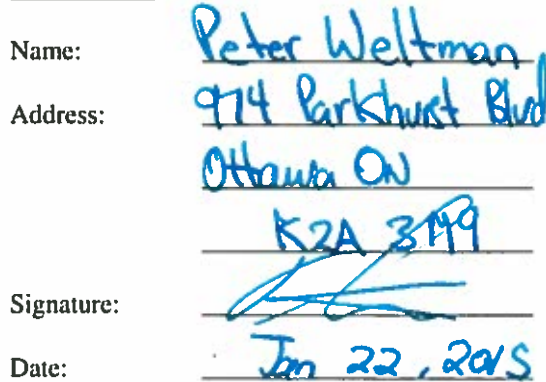 Name: Peter Weltman
Address: 974 Parkhurst Blvd
Ottawa ON
K2A 3M9
Signature:
Date: Jan 22, 2015